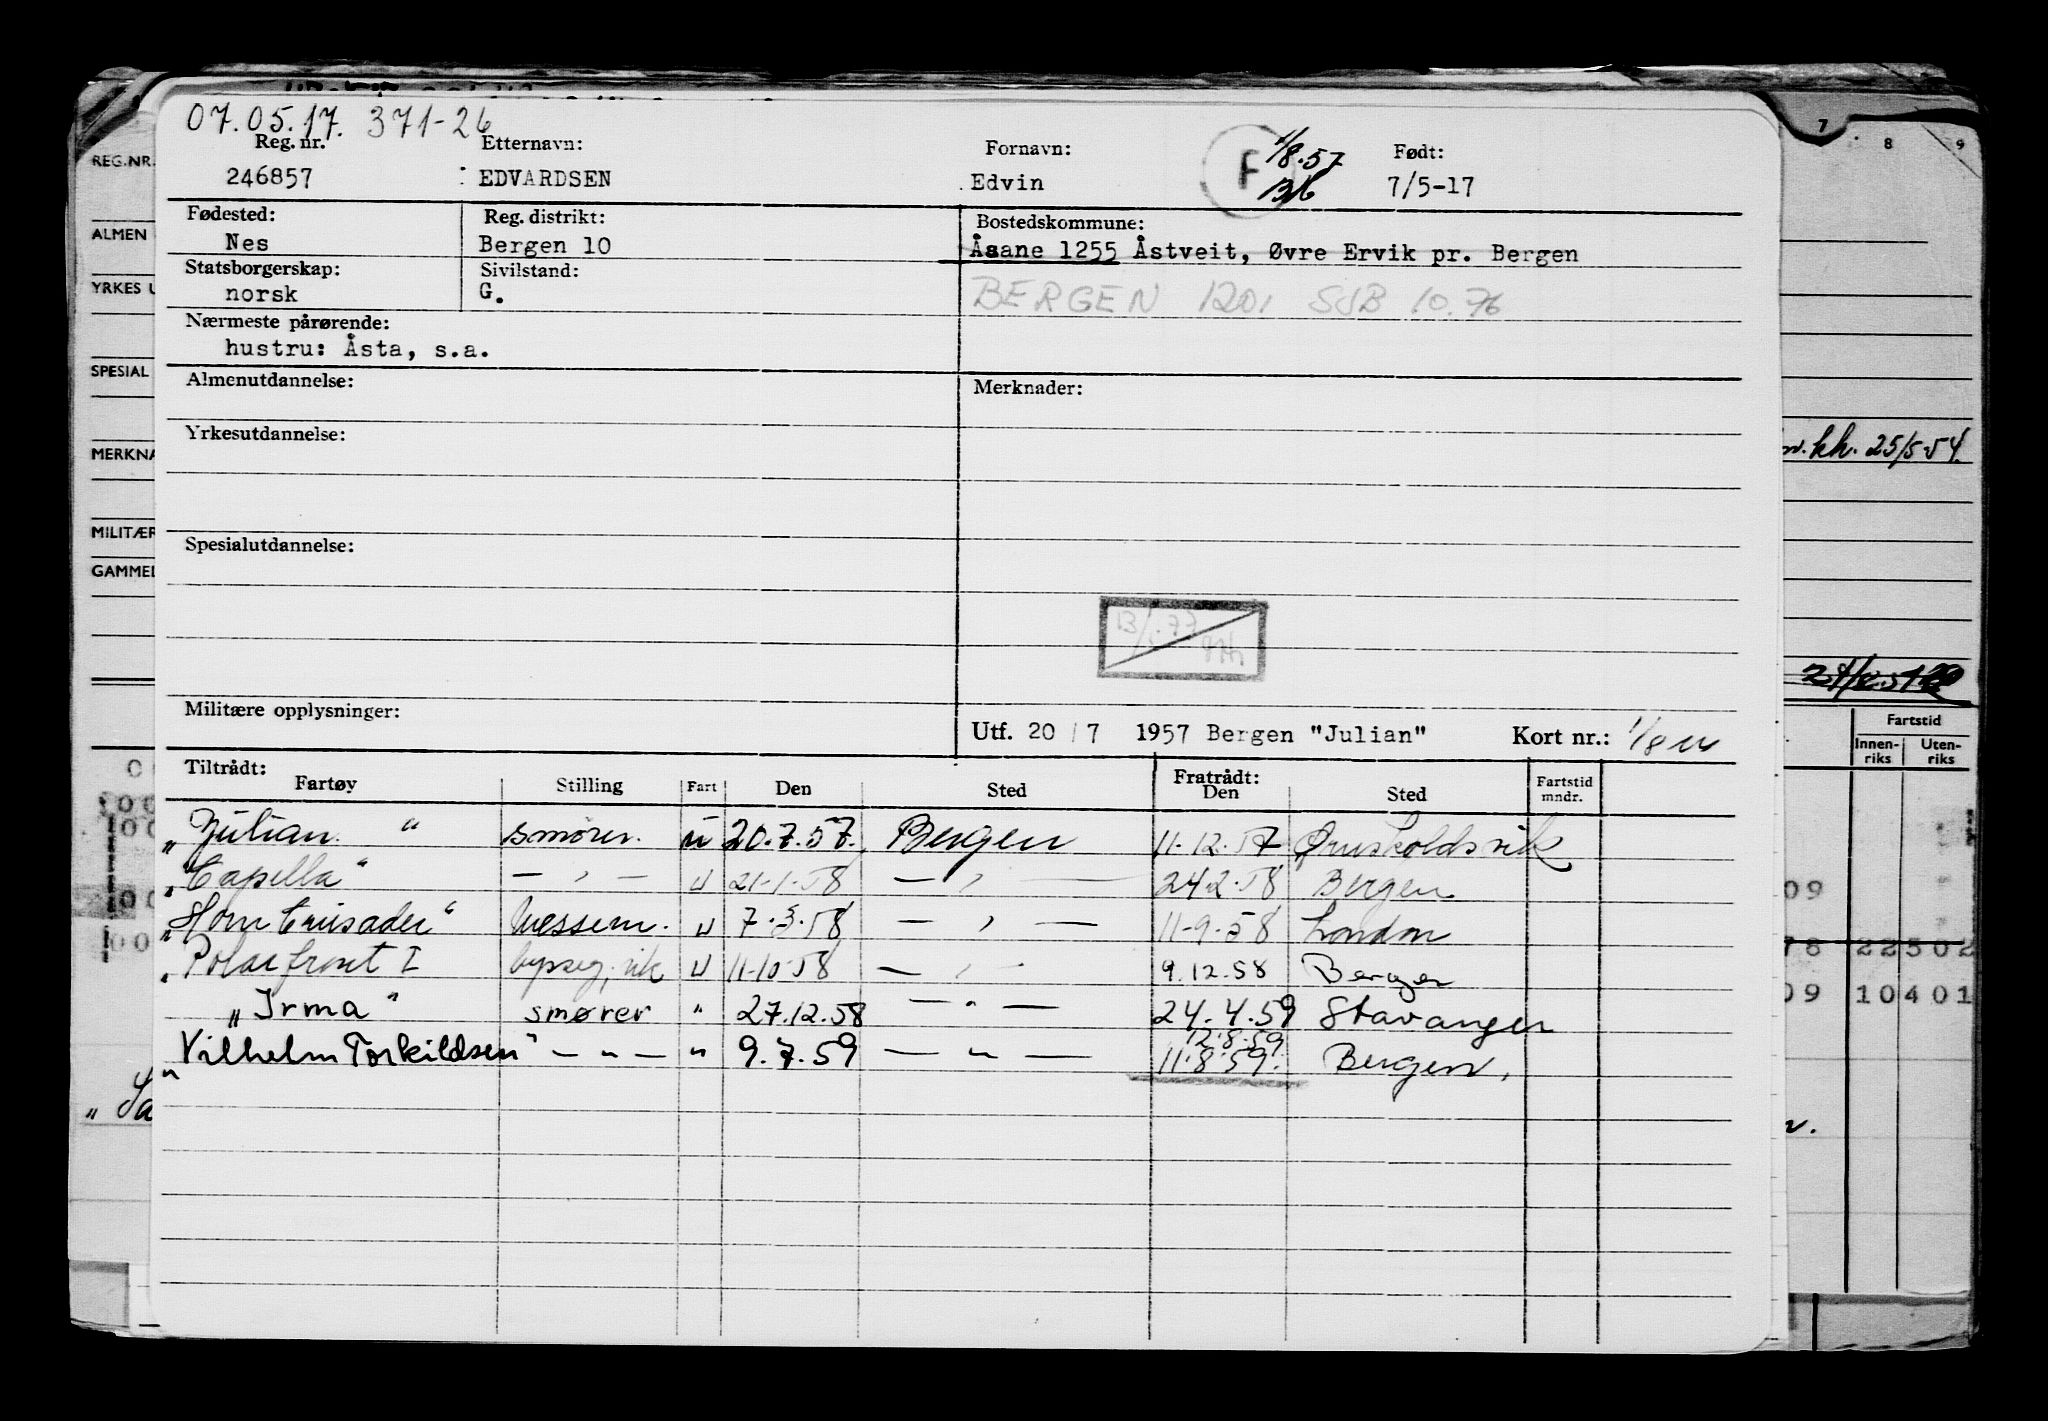 07.05.17. 371-26
Reg. nr. Etternavn: Fornavn: F 1/8.57 Født:
246857 EDVARDSEN Edvin 7/5-17
Fødested: Reg. distrikt: Bostedskommune:
Nes Bergen 10 Åsane 1255 Åstveit, Øvre Ervik pr. Bergen
Statsborgerskap: Sivilstand:
norsk G. BERGEN 1201 SJB 10.76
Nærmeste pårørende:
hustru: Åsta, s.a.
Almenutdannelse: Merknader:
Yrkesutdannelse:
Spesialutdannelse:
Militære opplysninger:
Utf. 20/7 1957 Bergen "Julian" Kort nr.:
Tiltrådt: Fratrådt:
Fartøy Stilling Fart Den Sted Den Sted Fartstid mndr.
"Julian" smører. u 20.7.57. Bergen 11.12.57 Ørnskoldsvik
"Capella" — " — u 21-1-58 — " — 24.2.58 Bergen
"Horn Crusader" messem. u 7.3.58 — " — 11-9.58 London
"Polarfront I u 11-10-58 — " — 9.12.58 Bergen
"Irma" smører " 27.12.58 — " — 24.4.59 Stavanger
12.8.59
"Vilhelm Torkildsen" — " — " 9.7.59 — " — 11.8.59. Bergen,
REG.NR.
ALMEN
YRKES U
SPESIAL
MERKNA
MILITÆR
GAMMEL
7 8 9
kh. 25/5-54.
Fartstid
Innen-riks Uten-riks
09
78 22502
09 10401
"Sa